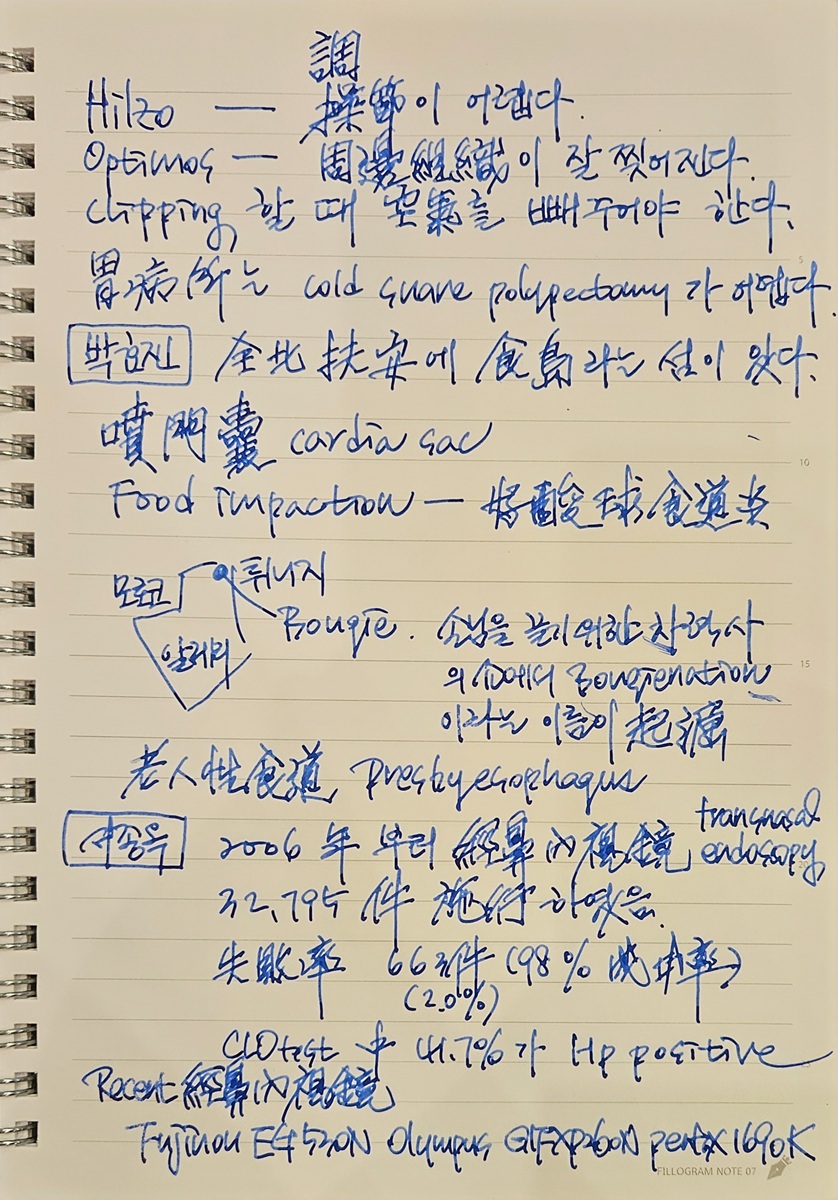 調
Hilzo — 操節이 어렵다.
Optimos — 周邊組織이 잘 찢어진다.
clipping 할 때 空氣를 빼주어야 한다.
胃病所는 cold snare polypectomy가 어렵다.
박효진 全北 扶安에 食島라는 섬이 있다.
噴門囊 cardia sac
Food impaction — 好酸球食道炎
모로코 튀니지
알제리 Bougie. 손님을 끌기 위한 차력사
의 Bougienation
이라는 이름이 起源
老人性食道 Presbyesophagus
서종옥 2006年 부터 經鼻內視鏡 transnasal endoscopy
32,795件 施行하였음.
失敗率 663件 (98% 成功率)
(2.0%)
CLOtest 中 41.7%가 Hp positive
Recent 經鼻內視鏡
Fujinon EG530N Olympus GIFXP260N pentax 1690K
5
10
15
20
FILLOGRAM NOTE 07